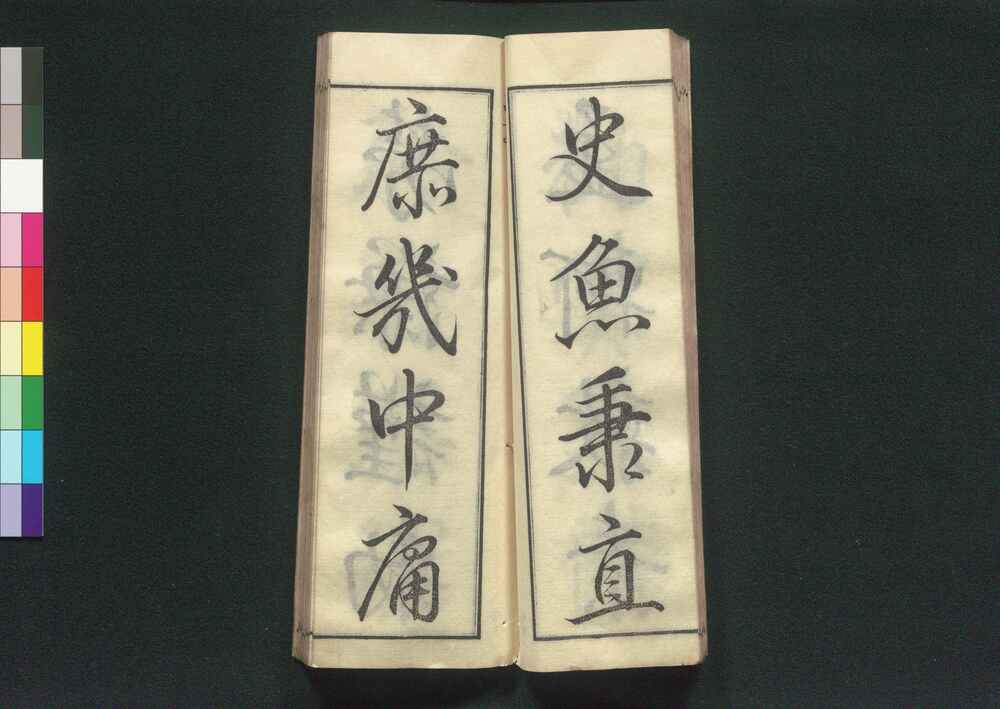 史魚秉直
庶幾中庸